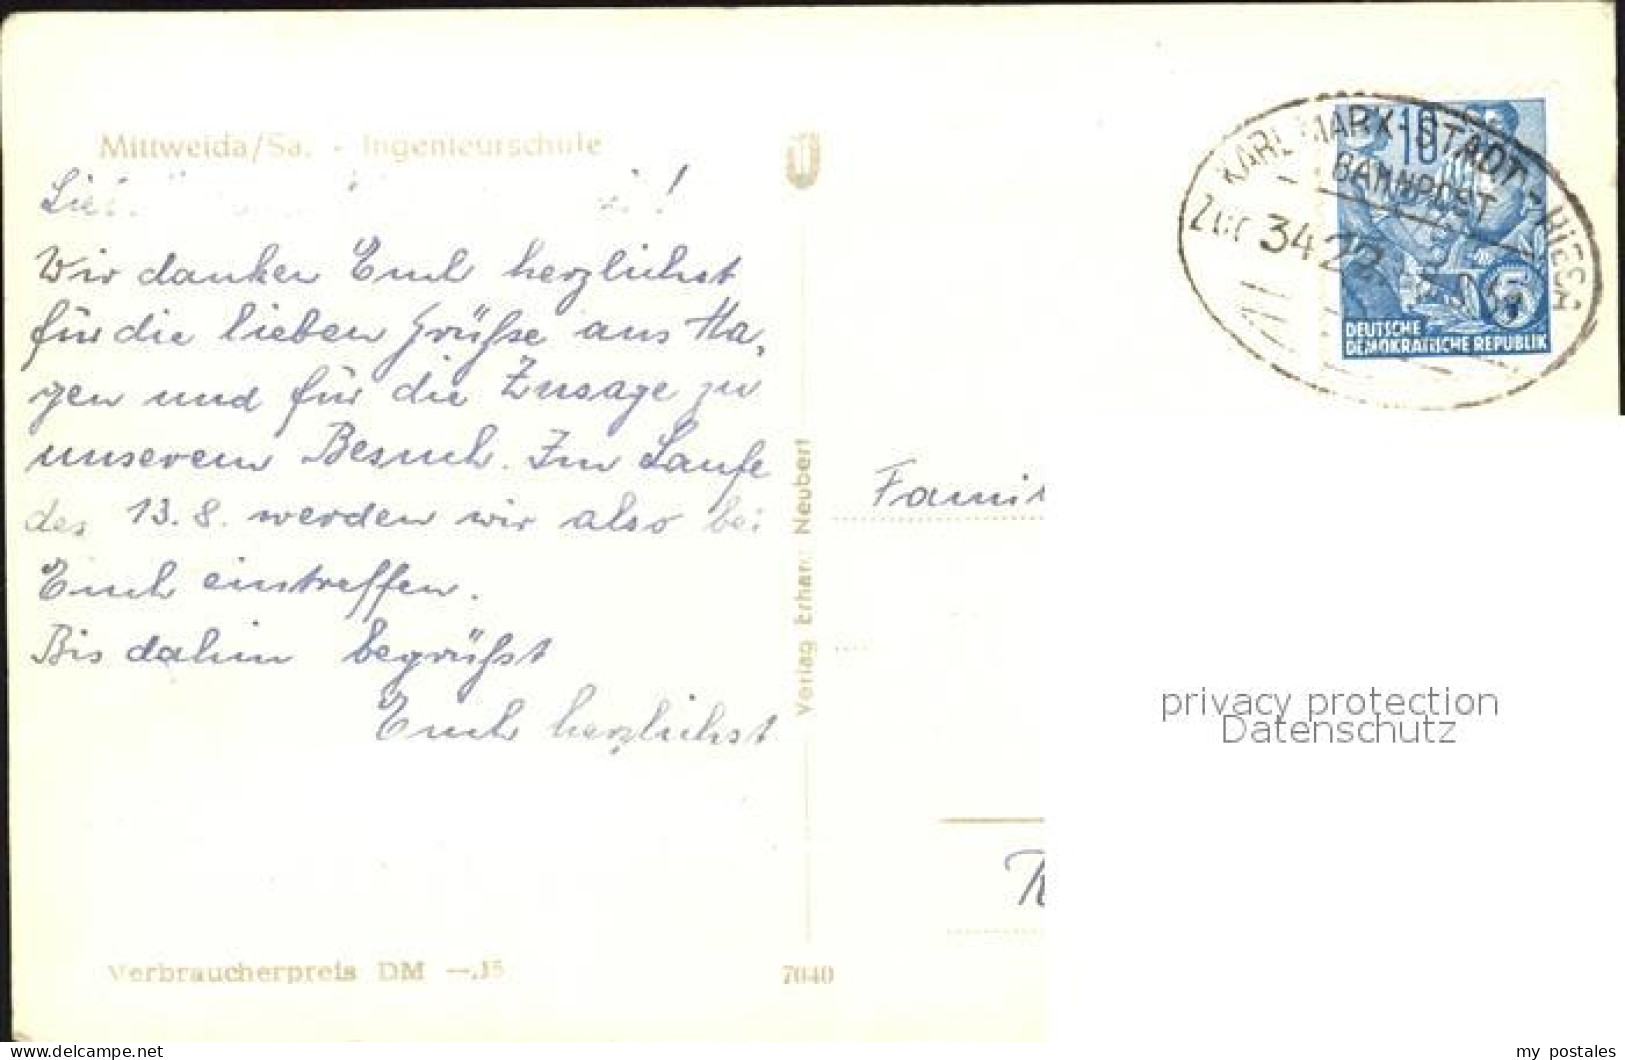 Mittweida/Sa. - Ingenieurschule
!
Wir danken Euch herzlichst
für die lieben Grüße aus Ha-
gen und für die Zusage zu
unserem Besuch. Im Laufe
des 13.8. werden wir also bei
Euch eintreffen.
Bis dahin begrüßt
Euch herzlichst
Verbraucherpreis DM —.15
Verlag Erhard Neubert
7040
KARL-MARX-STADT - RIESA
BAHNPOST
Zug 3422
10
5
DEUTSCHE
DEMOKRATISCHE REPUBLIK
Famil
privacy protection
Datenschutz
delcampe.net
my_postales